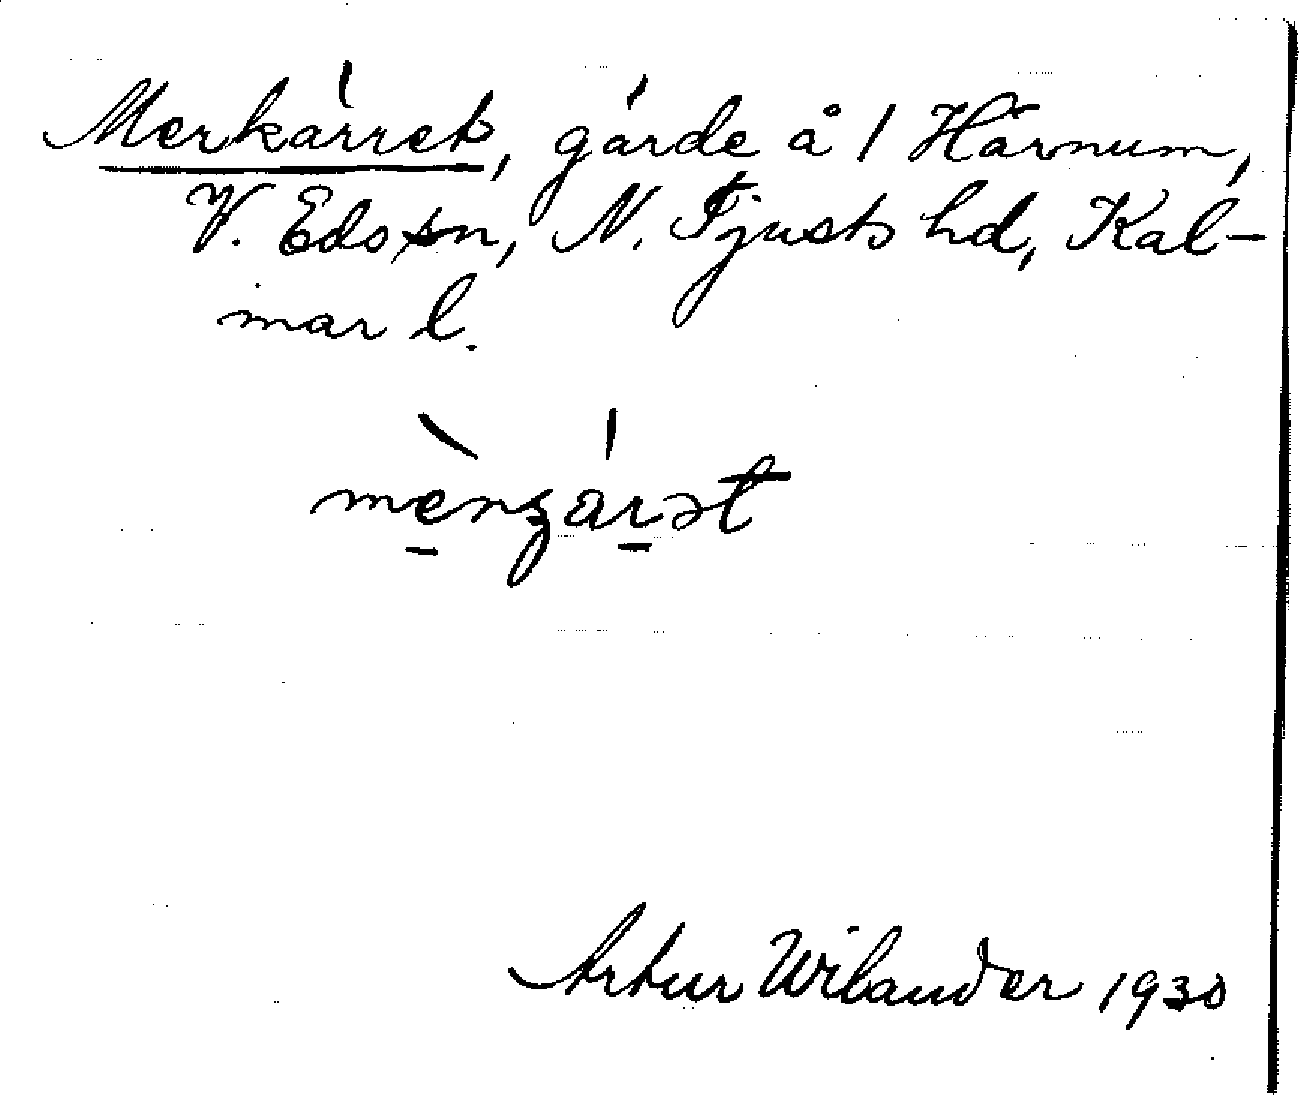 Merkärret, gärde å 1 Härnum,
V. Eds sn, N. Tjusts hd, Kal-
mar l.
Artur Wilander 1930